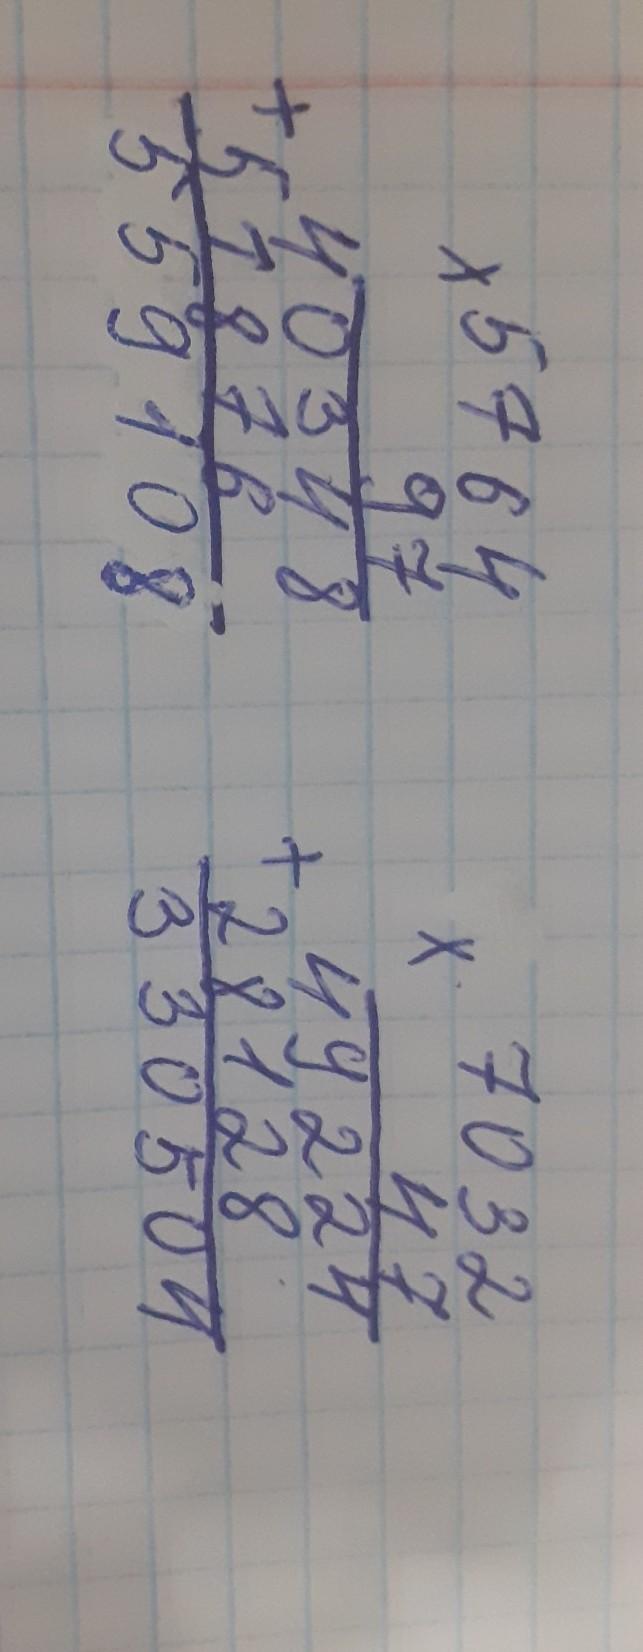 × 5764
97
40348
+ 51876
559108
× 7032
47
49224
+ 28128
330504